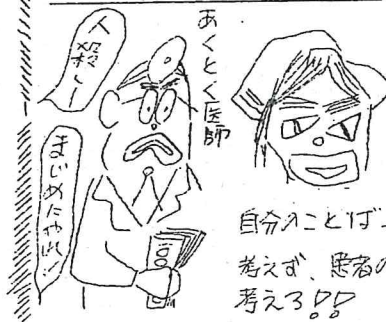 人殺しー
まじめにやれ!
あくとく医師
自分のことば
考えず、患者の
考えろ!!